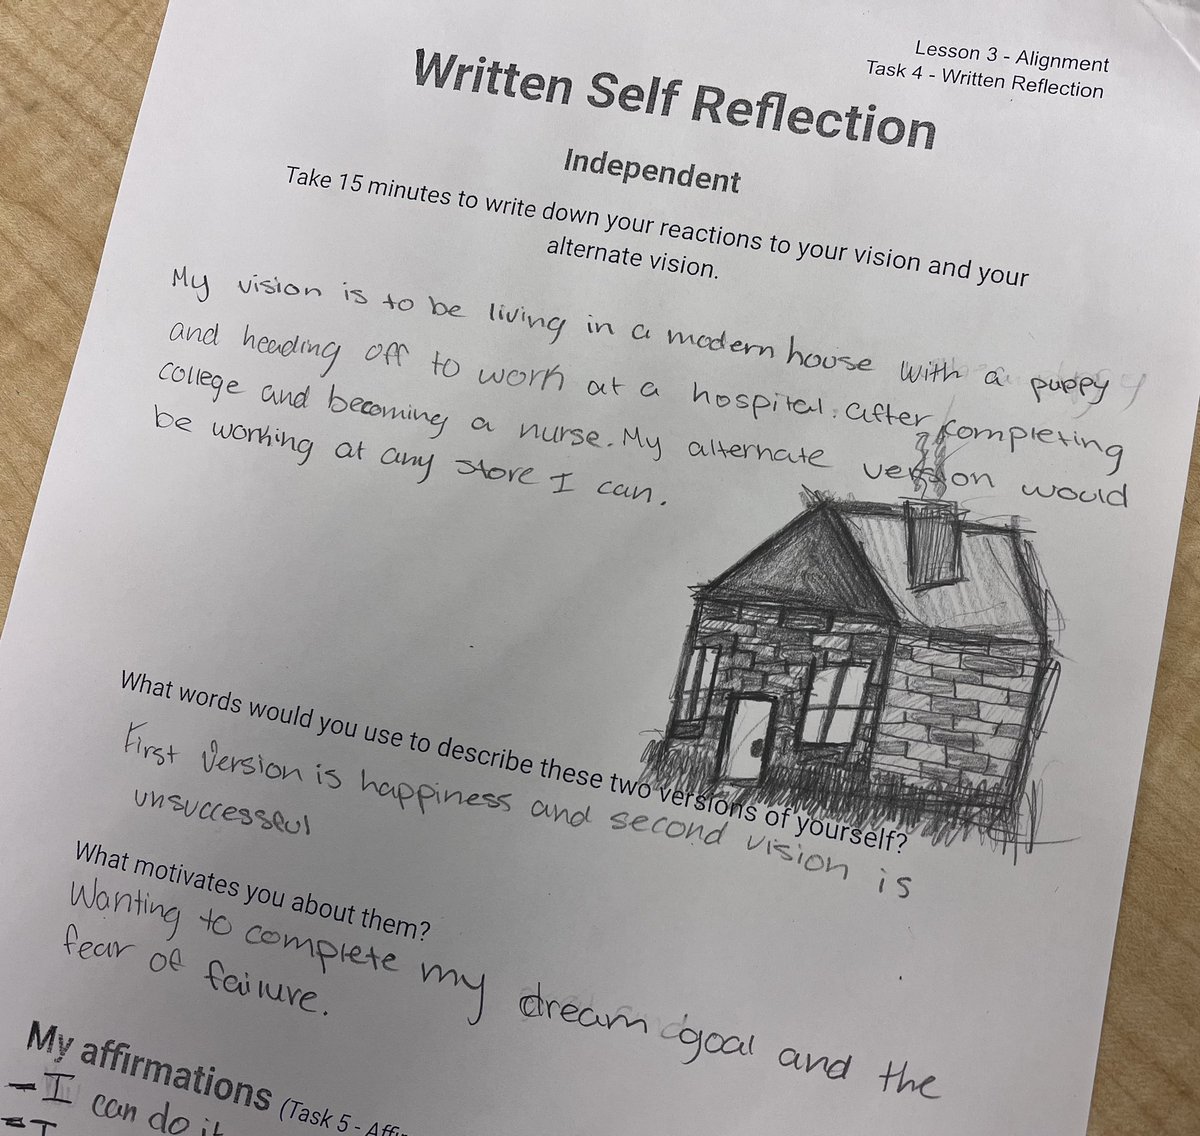 Lesson 3 - Alignment
Task 4 - Written Reflection
Written Self Reflection
Independent
Take 15 minutes to write down your reactions to your vision and your
alternate vision.
My vision is to be living in a modern house with a puppy
and heading off to work at a hospital. after completing
college and becoming a nurse. My alternate version would
be working at any store I can.
What words would you use to describe these two versions of yourself?
First version is happiness and second vision is
unsuccessful
What motivates you about them?
Wanting to complete my dream goal and the
fear of failure.
My affirmations (Task 5 -
- I can do it
- I